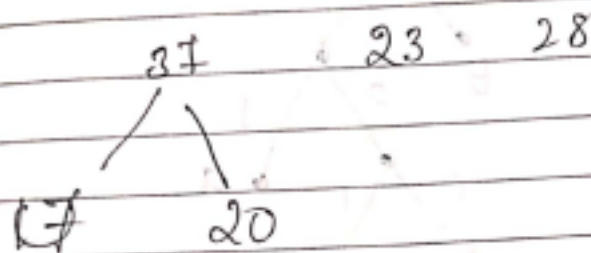 37 23 28
17 20